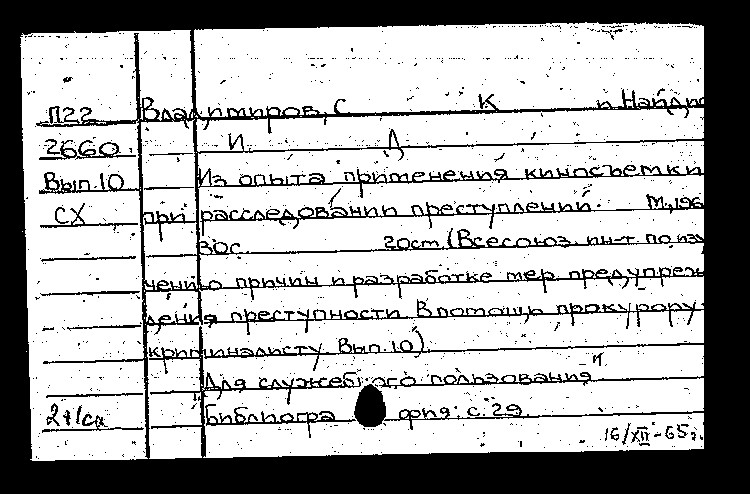 П22 Владимиров, С К и Найд
2660 И Д
Вып.10 Из опыта применения киносъемки
СХ при расследовании преступлений. М.,196
30с 20см (Всесоюз. ин-т по изу
чению причин и разработке мер предупреж
дения преступности. В помощь прокурору
криминалисту. Вып.10).
"Для служебного пользования"
Библиогра фия: с.29
16/XII-65г.